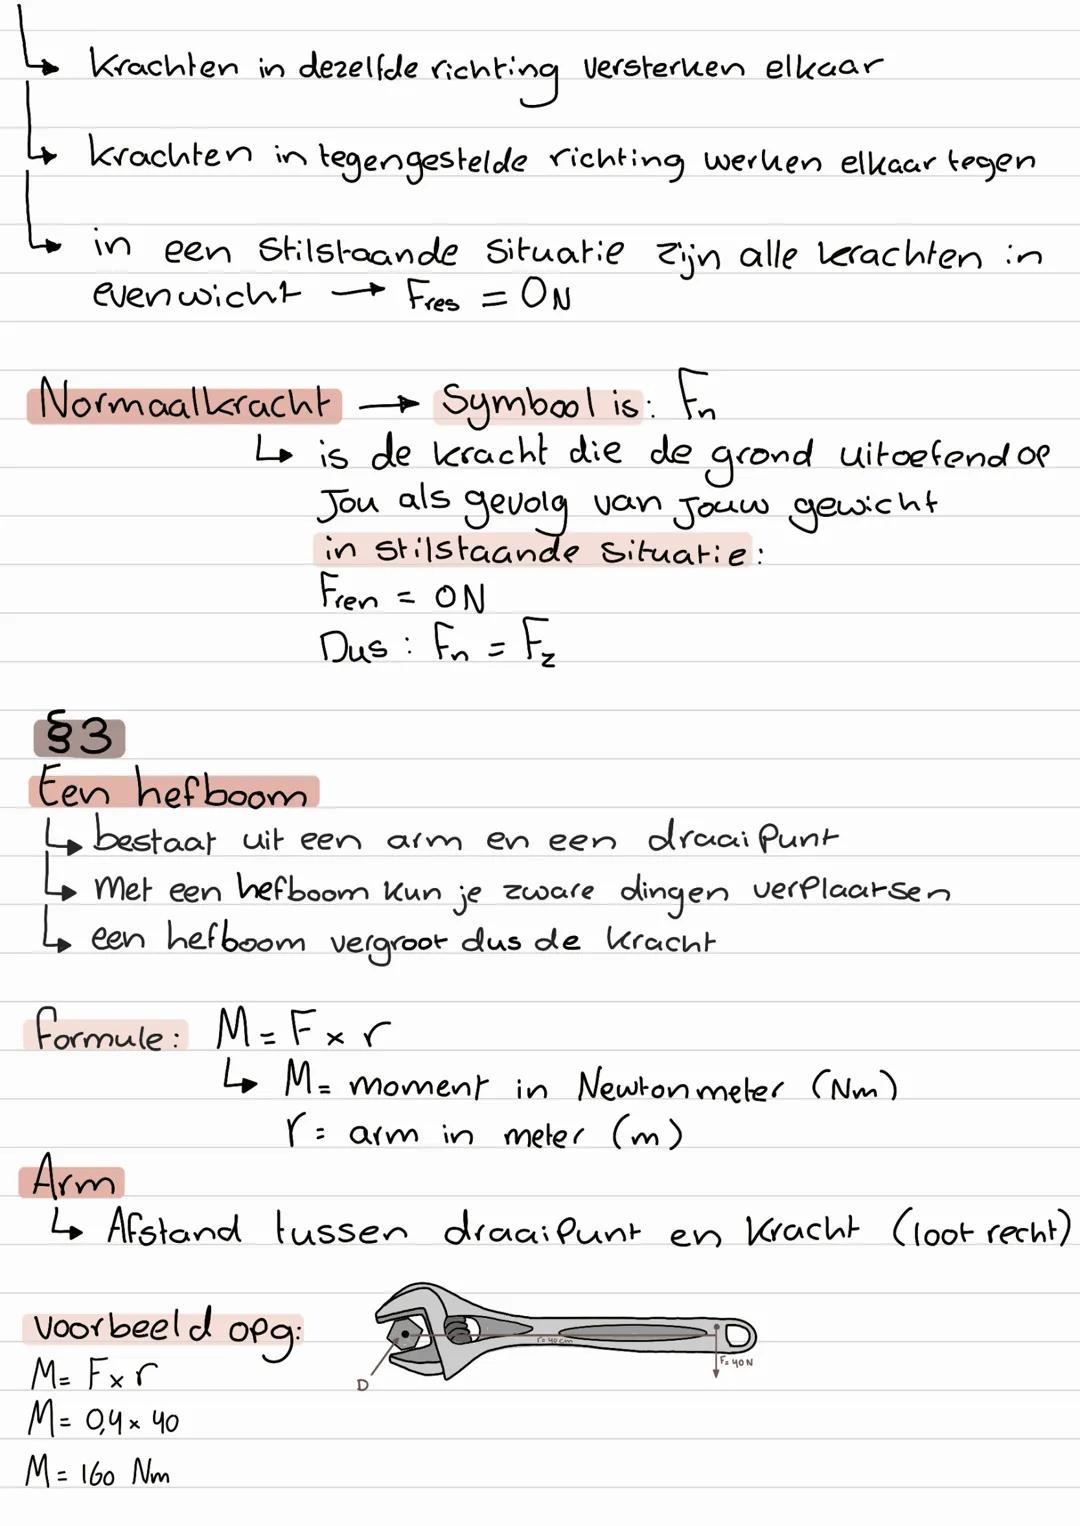 krachten in dezelfde richting versterken elkaar
krachten in tegengestelde richting werken elkaar tegen
in een stilstaande situatie zijn alle krachten in
evenwicht → Fres = 0N
Normaalkracht → Symbool is: Fn
↳ is de kracht die de grond uitoefend op
jou als gevolg van jouw gewicht
in stilstaande situatie:
Fren = 0N
Dus: Fn = Fz
§3
Een hefboom
↳ bestaat uit een arm en een draaipunt
↳ Met een hefboom kun je zware dingen verplaatsen
↳ een hefboom vergroot dus de kracht
formule: M = F × r
↳ M = moment in Newtonmeter (Nm)
r = arm in meter (m)
Arm
↳ Afstand tussen draaipunt en kracht (loot recht)
voorbeeld opg:
M = F × r
M = 0,4 × 40
M = 160 Nm
r = 40 cm
F = 40 N
D